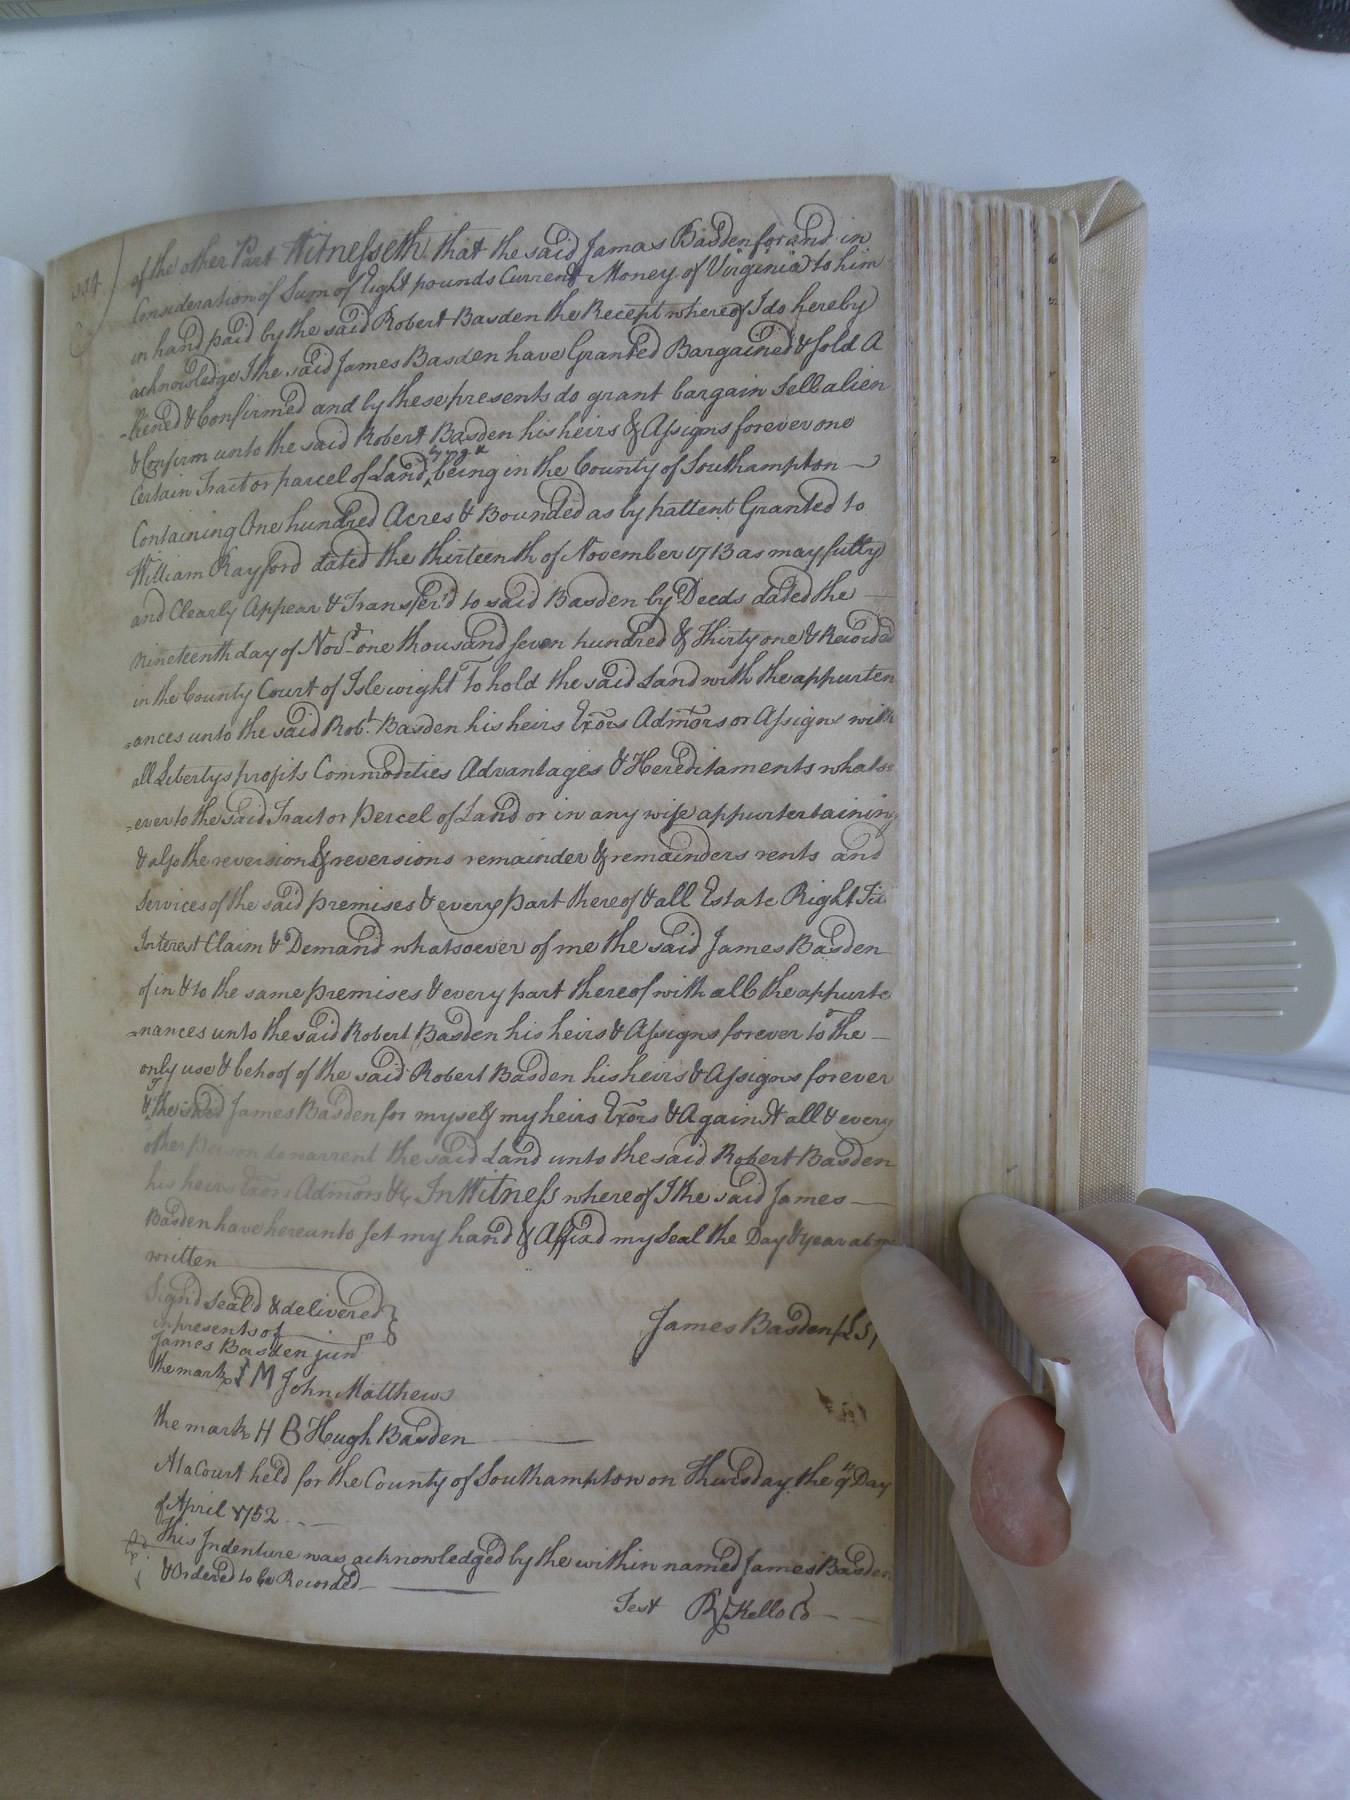 of the other Part Witnesseth that the said James Basden for and in
Consideration of Sum of Eight pounds Current Money of Virginia to him
in hand paid by the said Robert Basden the Recept whereof I do hereby
acknowledge I the said James Basden have Granted Bargained & Sold A
-liened & Confirmed and by these presents do grant bargain Sell alien
& Confirm unto the said Robert Basden his heirs & Assigns forever one
lying &
Certain Tract or parcel of Land ^ being in the County of Southampton
Containing One hundred Acres & Bounded as by pattent Granted to
William Rayford dated the thirteenth of November 1713 as may fully
and Clearly Appear & Transfer'd to said Basden by Deeds dated the
nineteenth day of Nov.r one thousand seven hundred & Thirty one & Recorded
in the County Court of Islewight To hold the said Land with the appurten
-ances unto the said Rob.t Basden his heirs Exors Admors or Assigns with
all Libertys profits Commodities Advantages & Hereditaments whatso
-ever to the said Tract or Percel of Land or in any wise appurtertaining
& also the reversion & reversions remainder & remainders rents and
Services of the said premises & every part thereof & all Estate Right Tit
Interest Claim & Demand whatsoever of me the said James Basden
of in & to the same premises & every part thereof with all the appurte
-nances unto the said Robert Basden his heirs & Assigns forever to the
only use & behoof of the said Robert Basden his heirs & Assigns forever
& I the said James Basden for myself my heirs Exors & Against all & every
other Person do warrent the said Land unto the said Robert Basden
his heirs Exors Admors &c In Witness whereof I the said James
Basden have hereunto set my hand & Affixd my Seal the Day & year above
written
Signd Seald & delivered
in presents of
James Basden (LS)
James Basden jun.r
the mark I M John Matthews
the mark H B Hugh Basden
At a Court held for the County of Southampton on Thursday the 9th Day
of April 1752
This Indenture was acknowledged by the within named James Basden
& Ordered to be Recorded
Test R Kello